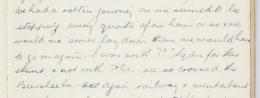 we had a rotten journey as we seemed to be
stopping every quarter of an hour or so & we
would no sooner lay down than we would have
to go again. I was with "C" Sqdn for this
stunt & not with H.Q. we so crossed the
Beersheba railway & went about